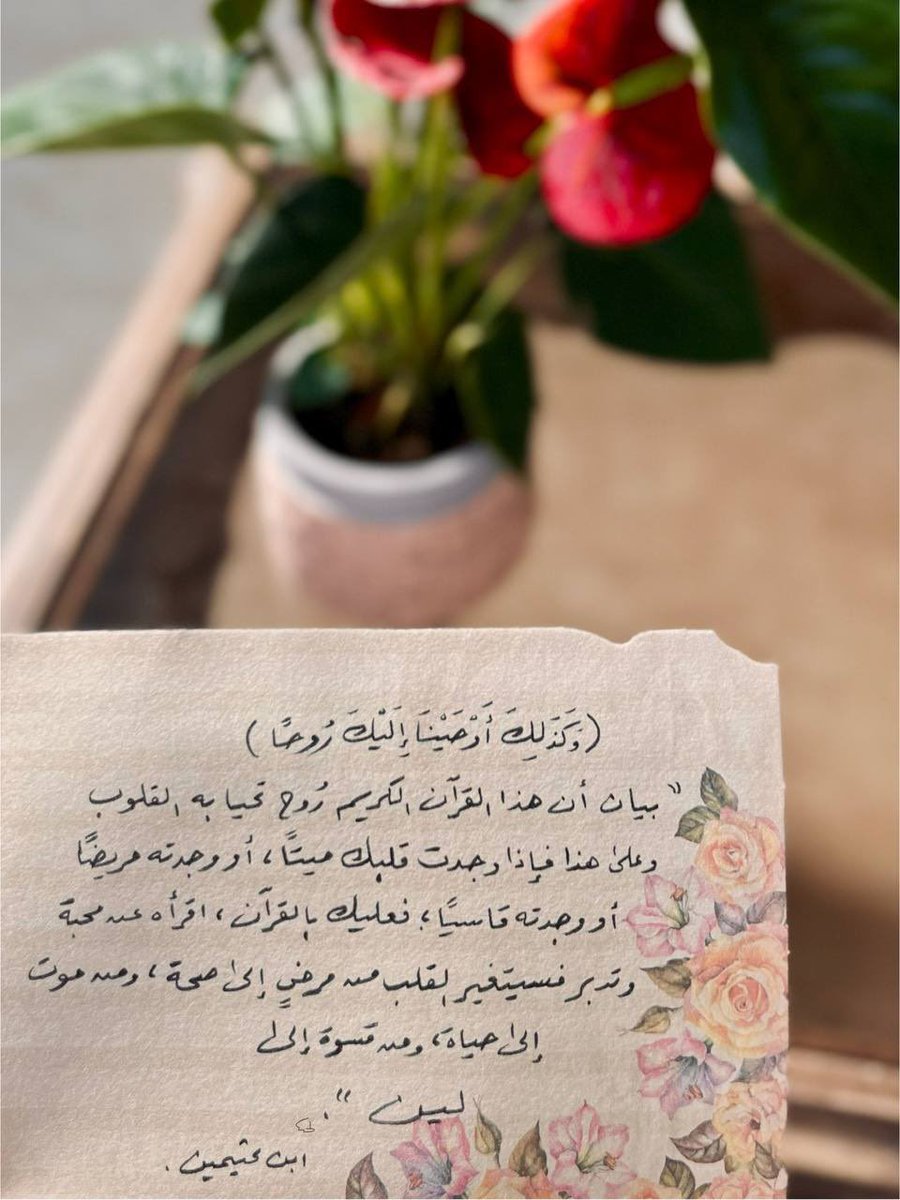 (وَكَذَلِكَ أَوْحَيْنَا إِلَيْكَ رُوحًا)
"بيان أن هذا القرآن الكريم رُوح تحيا به القلوب
وعلى هذا فإذا وجدت قلبك ميتًا، أو وجدته مريضًا
أو وجدته قاسيًا؛ فعليك بالقرآن، اقرأه عن محبة
وتدبر فسيتغير القلب من مرضٍ إلى صحة، ومن موت
إلى حياة، ومن قسوة إلى
لين".
ابن عثيمين.